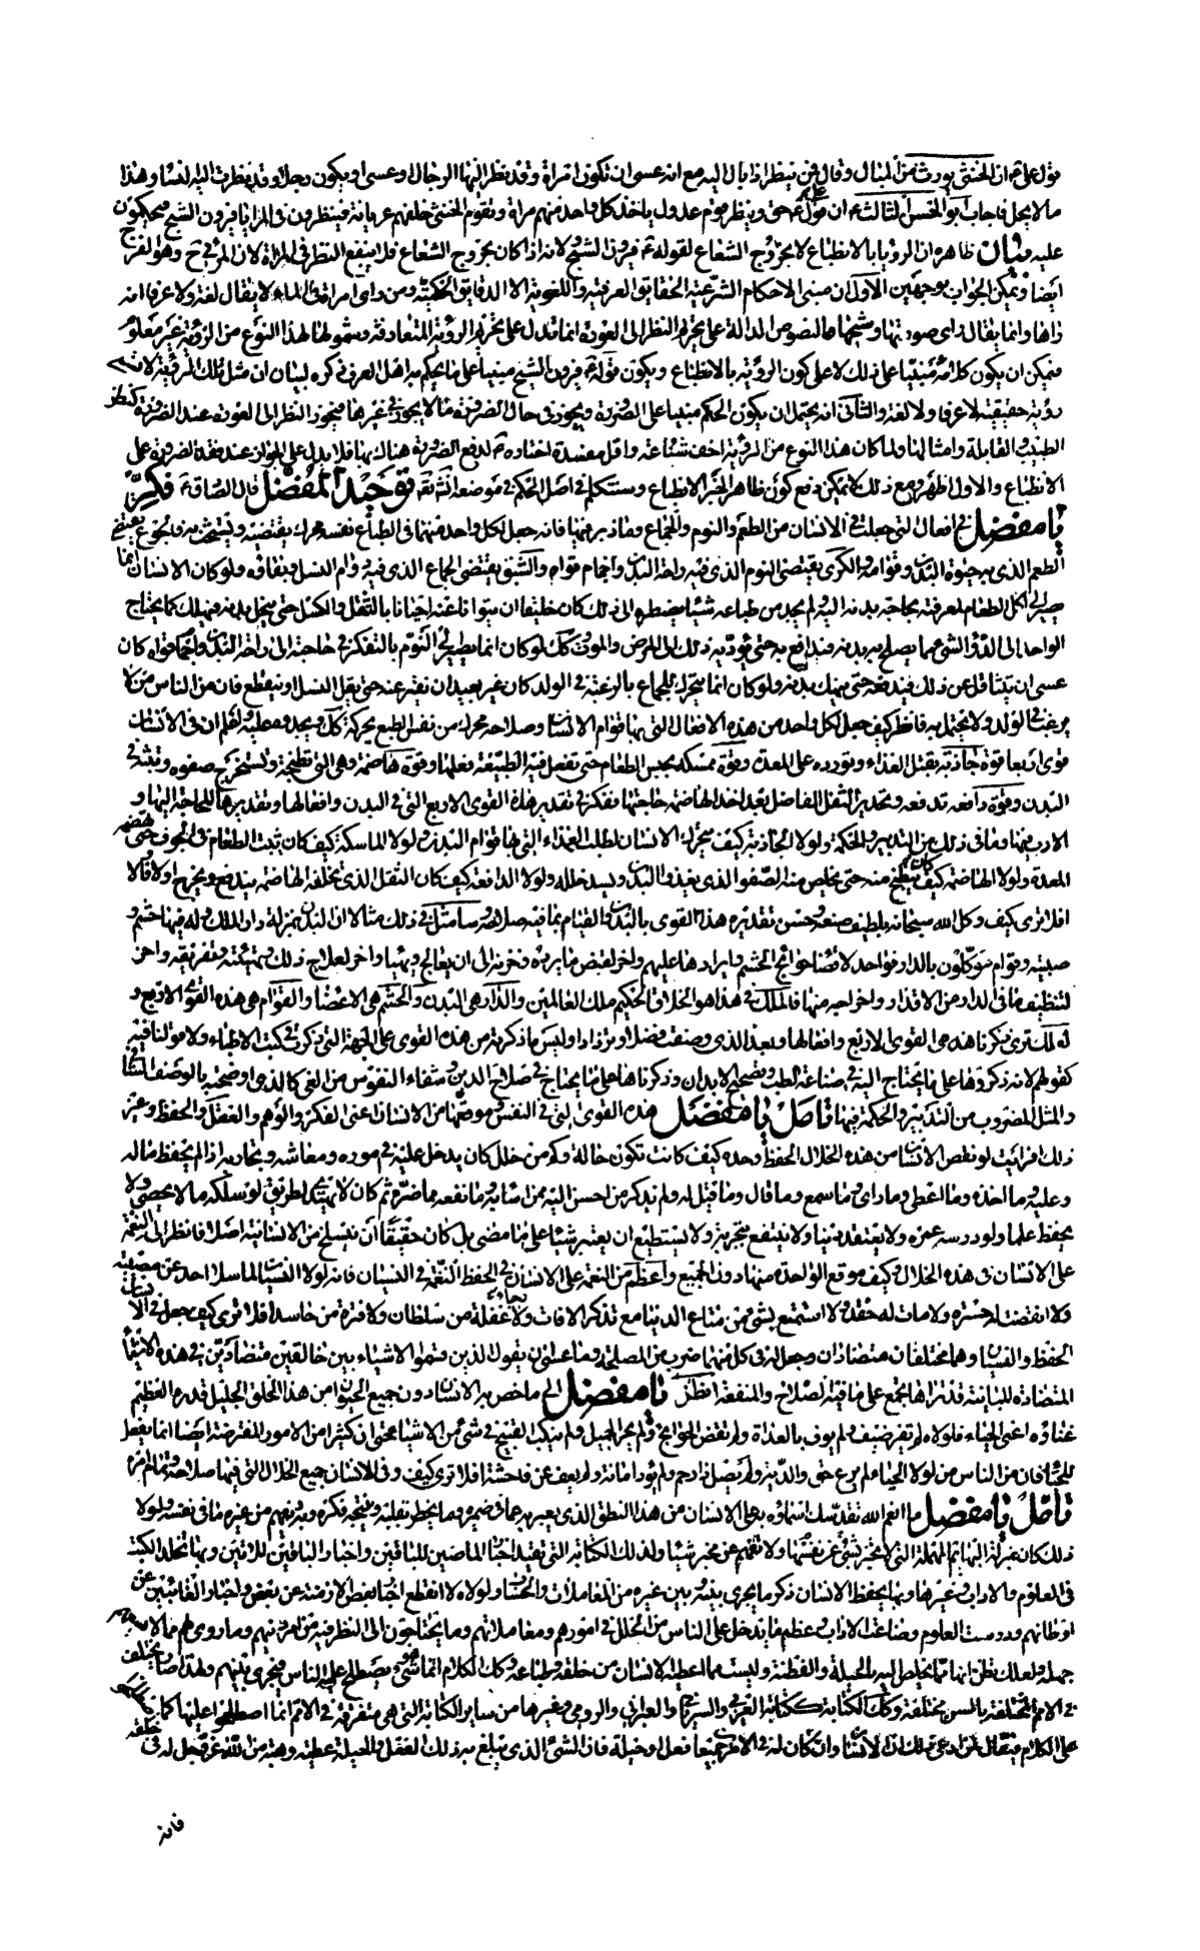 قول على ع ان الخنثى يورث من المبال وقال فمن ينظر اذا بال اليه مع انه عسى ان تكون امراة وقد نظر اليها الرجال او عسى ان يكون رجلا وقد نظرت اليه النساء وهذا
ما لا يحل فاجاب ابو الحسن الثالث ع ان قول على ع حق وينظر قوم عدول ياخذ كل واحد منهم مراة وتقوم الخنثى خلفهم عريانة فينظرون فى المرايا فيرون الشبح فيحكمون
عليه بيان ظاهره ان الرؤيا بالانطباع لا بخروج الشعاع لقوله ع فيرون الشبح ولانه اذا كان بخروج الشعاع فلا ينفع النظر فى المراة لان المرئى ح هو الفرج
ايضا ويمكن الجواب بوجهين الاول ان مبنى الاحكام الشرعية الحقايق العرفية واللغوية لا الدقايق الحكمية ومن راى امراة فى الماء لا يقال لغة ولا عرفا انه
راها وانما يقال راى صورتها وشبحها والنصوص الدالة على تحريم النظر الى العورة انما تدل على تحريم الرؤية المتعارفة وشمولها لهذا النوع من الرؤية غير معلوم
فيمكن ان يكون كلامه ع مبنيا على ذلك لا على كون الرؤية بالانطباع ويكون قوله ع فيرون الشبح مبنيا على ما يحكم به اهل العرف
رؤية حقيقية لا عرفا ولا لغة والثانى انه يحتمل ان يكون الحكم مبنيا على الضرورة ويجوز فى حال الضرورة ما لا يجوز فى غيرها فيجوز النظر الى العورة عند الضرورة كنظر
الطبيب والقابلة وامثالهما ولما كان هذا النوع من الرؤية اخف شناعة واقل مفسدة اختاره ع لدفع الضرورة هناك بها فلا يدل على الجواز عند فقد الضرورة على
الانطباع والاول اظهر ومع ذلك لا يمكن دفع كون ظاهر الخبر الانطباع وسنتكلم فى اصل الحكم فى موضعه انشاءالله توحيد المفضل قال الصادق ع فكر
يا مفضل فى افعال التى جعلت فى الانسان من الطعم والنوم والجماع وما دبر فيها فانه جعل لكل واحد منهما فى الطباع نفسه محرك يقتضيه ويستحث به فالجوع يقتضى
الطعم الذى به حيوة البدن وقوامه والكرى يقتضى النوم الذى فيه راحة البدن واجمام قواه والشبق يقتضى الجماع الذى فيه دوام النسل وبقاؤه ولو كان الانسان انما
يصير الى اكل الطعام لمعرفته بحاجة بدنه اليه ولم يجد من طباعه شيئا يضطره الى ذلك كان خليقا ان يتوانى عنه احيانا بالثقل والكسل حتى ينحل بدنه فيهلك كما يحتاج
الواحد الى الدواء لشئ مما يصلح به بدنه فيدافع به حتى يؤديه ذلك الى المرض والموت وكك لو كان انما يصير الى النوم بالتفكر فى حاجته الى راحة البدن واجمام قواه كان
عسى ان يتثاقل عن ذلك فيدفعه حتى ينهك بدنه ولو كان انما يتحرك للجماع بالرغبة فى الولد كان غير بعيد ان يفتر عنه حتى يقل النسل او ينقطع فان من الناس من لا
يرغب فى الولد ولا يحفل به فانظر كيف جعل لكل واحد من هذه الافعال التى بها قوام الانسان وصلاحه محرك من نفس الطبع يحركه لذلك ويحدوه عليه واعلم ان فى الانسان
قوى اربعا قوة جاذبة تقبل الغذاء وتورده على المعدة وقوة ممسكة تحبس الطعام حتى تفعل فيه الطبيعة فعلها وقوة هاضمة وهى التى تطبخه وتستخرج صفوه وتبثه فى
البدن وقوة دافعة تدفعه وتحدر الثفل الفاضل بعد اخذ الهاضمة حاجتها ففكر فى تقدير هذه القوى الاربع التى فى البدن وافعالها وتقديرها للحاجة اليها و
الارب فيها وما فى ذلك من التدبير والحكمة ولولا الجاذبة كيف يتحرك الانسان لطلب الغذاء التى بها قوام البدن ولولا الماسكة كيف كان يثبت الطعام فى الجوف حتى تهضمه
المعدة ولولا الهاضمة كيف كان ينطبخ منه حتى يخلص منه الصفو الذى يغذو البدن ويسد خلله ولولا الدافعة كيف كان الثفل الذى تخلفه الهاضمة يندفع ويخرج اولا فاولا
افلا ترى كيف وكل الله سبحانه بلطيف صنعه وحسن تقديره هذه القوى بالبدن والقيام بما فيه صلاحه وسامثل فى ذلك مثالا ان البدن بمنزلة دار الملك وله فيها حشم و
صبية وقوام موكلون بالدار فواحد لاقضاء حوائج الحشم وايرادها عليهم واخر لقبض ما يرد وخزنه الى ان يعالج ويهيأ واخر لعلاج ذلك وتهيئته وتفريقه واخر
لتنظيف ما فى الدار من الاقذار واخراجه منها فالملك فى هذا هو الخلاق الحكيم ملك العالمين والدار هى البدن والحشم هى الاعضاء والقوام هى هذه القوى الاربع و
لعلك ترى ذكرنا هذه القوى الاربع وافعالها بعد الذى وصفت فضلا وتزدادا وليس ما ذكرته من هذه القوى على الجهة التى ذكرت فى كتب الاطباء ولا قولنا فيه
كقولهم لانهم ذكروها على ما يحتاج اليه فى صناعة الطب وتصحيح الابدان وذكرناها على ما يحتاج فى صلاح الدين وشفاء النفوس من الغى كالذى اوضحته بالوصف الشافى
والمثل المضروب من التدبير والحكمة فيها تامل يا مفضل هذه القوى التى فى النفس وموقعها من الانسان اعنى الفكر والوهم والعقل والحفظ وغير
ذلك افرايت لو نقص الانسان من هذه الخلال الحفظ وحده كيف كانت تكون حاله وكم من خلل كان يدخل عليه فى اموره ومعاشه وتجاربه اذا لم يحفظ ماله
وعليه وما اخذه وما اعطى وما راى وما سمع وما قال وما قيل له ولم يذكر من احسن اليه ممن اساء به وما نفعه مما ضره ثم كان لا يهتدى لطريق لو سلكه ما لا يحصى ولا
يحفظ علما ولو درسه عمره ولا يعتقد دينا ولا ينتفع بتجربة ولا يستطيع ان يعتبر شيئا على ما مضى بل كان حقيقا ان ينسلخ من الانسانية اصلا فانظر الى النعمة
على الانسان فى هذه الخلال وكيف موقع الواحدة منها دون الجميع واعظم من النعمة على الانسان فى الحفظ النعمة فى النسيان فانه لولا النسيان لما سلا احد عن مصيبة
ولا انقضت له حسرة ولا مات له حقد ولا استمتع بشئ من متاع الدنيا مع تذكر الافات ولا رجاء غفلة من سلطان ولا فترة من حاسد افلا ترى كيف جعل فى الانسان
الحفظ والنسيان وهما مختلفان متضادان وجعل له فى كل منهما ضرب من المصلحة وما عسى ان يقول الذين قسموا الاشياء بين خالقين متضادين فى هذه الاشياء
المتضادة المتباينة وقد تراها تجمع على ما فيه الصلاح والمنفعة انظر يا مفضل الى ما خص به الانسان دون جميع الحيوان من هذا الخلق الجليل قدره العظيم
غناؤه اعنى الحياء فلولاه لم يقر ضيف ولم يوف بالعداة ولم تقض الحوائج ولم يتحر الجميل ولم يتنكب القبيح فى شئ من الاشياء حتى ان كثيرا من الامور المفترضة ايضا انما يفعل
للحياء فان من الناس من لولا الحياء لم يرع حق والديه ولم يصل ذا رحم ولم يؤد امانة ولم يعف عن فاحشة افلا ترى كيف وفى للانسان جميع الخلال التى فيها صلاحه وتمام امره
تامل يا مفضل ما انعم الله تقدست اسماؤه به على الانسان من هذا النطق الذى يعبر به عما فى ضميره وما يخطر بقلبه وينتجه فكره وبه يفهم من غيره ما فى نفسه ولولا
ذلك كان بمنزلة البهائم المهملة التى لا تخبر عن نفسها بشئ ولا تفهم عن مخبر شيئا وكذلك الكتابة التى تقيد اخبار الماضين للباقين واخبار الباقين للاتين وبها تخلد الكتب
فى العلوم والاداب وغيرها وبها يحفظ الانسان ذكر ما يجرى بينه وبين غيره من المعاملات والحساب ولولاه لانقطع اخبار بعض الازمنة عن بعض واخبار الغائبين عن
اوطانهم ودرست العلوم وضاعت الاداب وعظم ما يدخل على الناس من الخلل فى امورهم ومعاملاتهم وما يحتاجون الى النظر فيه من امر دينهم وما روى لهم مما لا يسعهم
جهله ولعلك تظن انها مما يخلص اليه بالحيلة والفطنة وليست مما اعطيه الانسان من خلقه وطباعه وكك الكلام انما هو شئ يصطلح عليه الناس فيجرى بينهم ولهذا صار يختلف
فى الامم المختلفة بالسن مختلفة وكك الكتابة ككتابة العربى والسريانى والعبرانى والرومى وغيرها من ساير الكتابة التى هى متفرقة فى الامم انما اصطلحوا عليها كما اصطلحوا
على الكلام فيقال لمن ادعى ذلك ان الانسان وان كان له فى الامرين جميعا فعل او حيلة فان الشئ الذى يبلغ به ذلك الفعل والحيلة عطية وهبة من الله عز وجل له فى خلقه
فانه